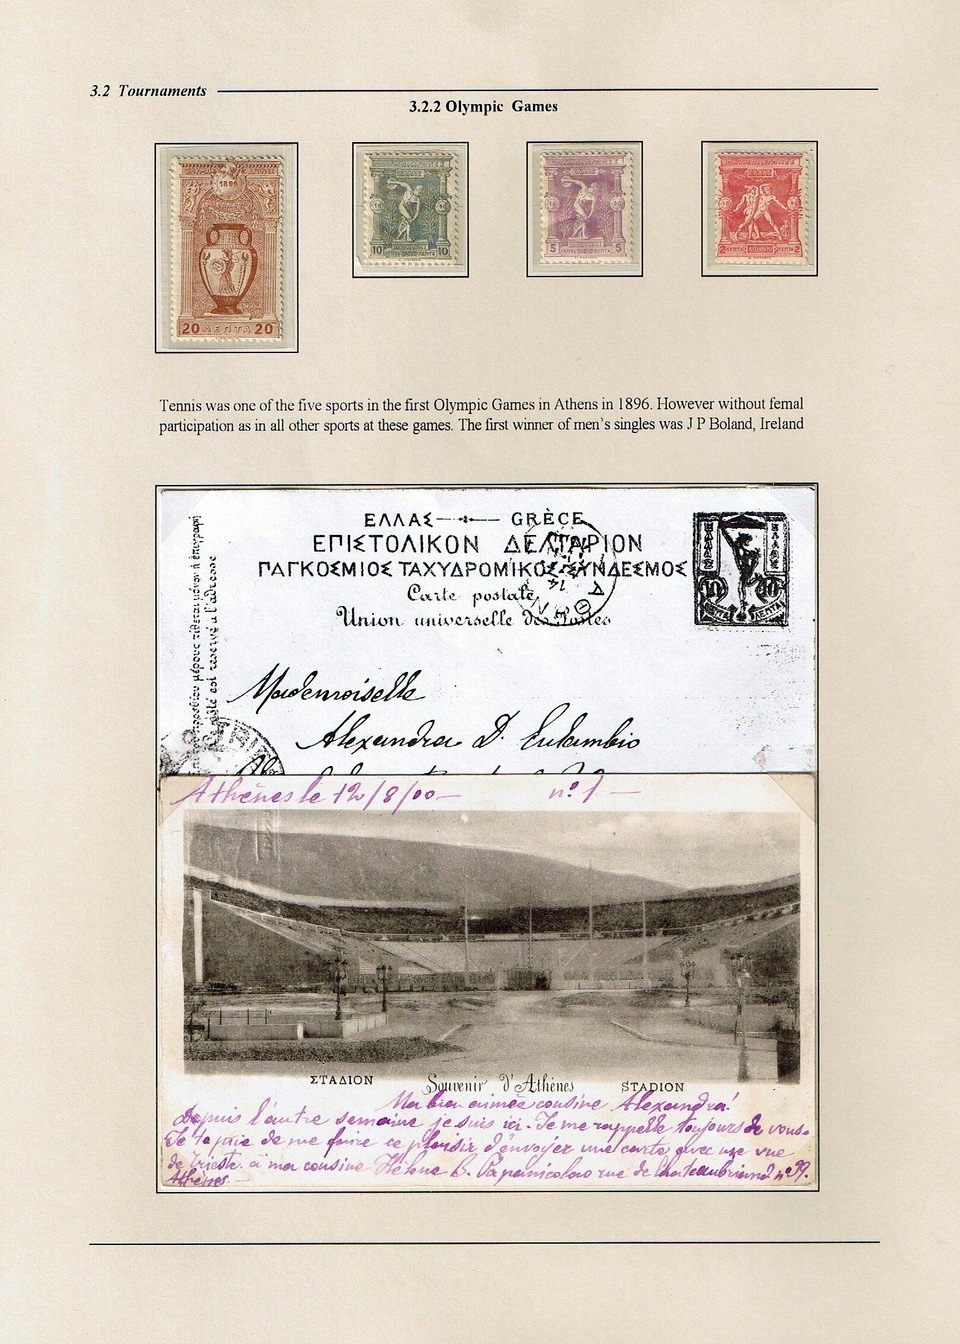 3.2 Tournaments
3.2.2 Olympic Games
1896
20 ΛΕΠΤΑ 20
10 10
5 5
2 2
Tennis was one of the five sports in the first Olympic Games in Athens in 1896. However without femal
participation as in all other sports at these games. The first winner of men's singles was J P Boland, Ireland
ΕΛΛΑΣ GRÈCE
ΕΠΙΣΤΟΛΙΚΟΝ ΔΕΛΤΑΡΙΟΝ
ΠΑΓΚΟΣΜΙΟΣ ΤΑΧΥΔΡΟΜΙΚΟΣ ΣΥΝΔΕΣΜΟΣ
Carte postale
Union universelle des Postes
10 10
Mademoiselle
Alexandra D.
Athènes le 12/8/00 — nº 1 —
ΣΤΑΔΙΟΝ Souvenir d'Athènes STADION
Ma bien aimée cousine Alexandra!
Depuis l'autre semaine je suis ici. Je me rappelle toujours de vous.
Je te prie de me faire ce plaisir d'envoyer une carte avec une vue
de Trieste à ma cousine Hélène B. Papanicolao rue de Chateaubriand nº 99.
Athènes